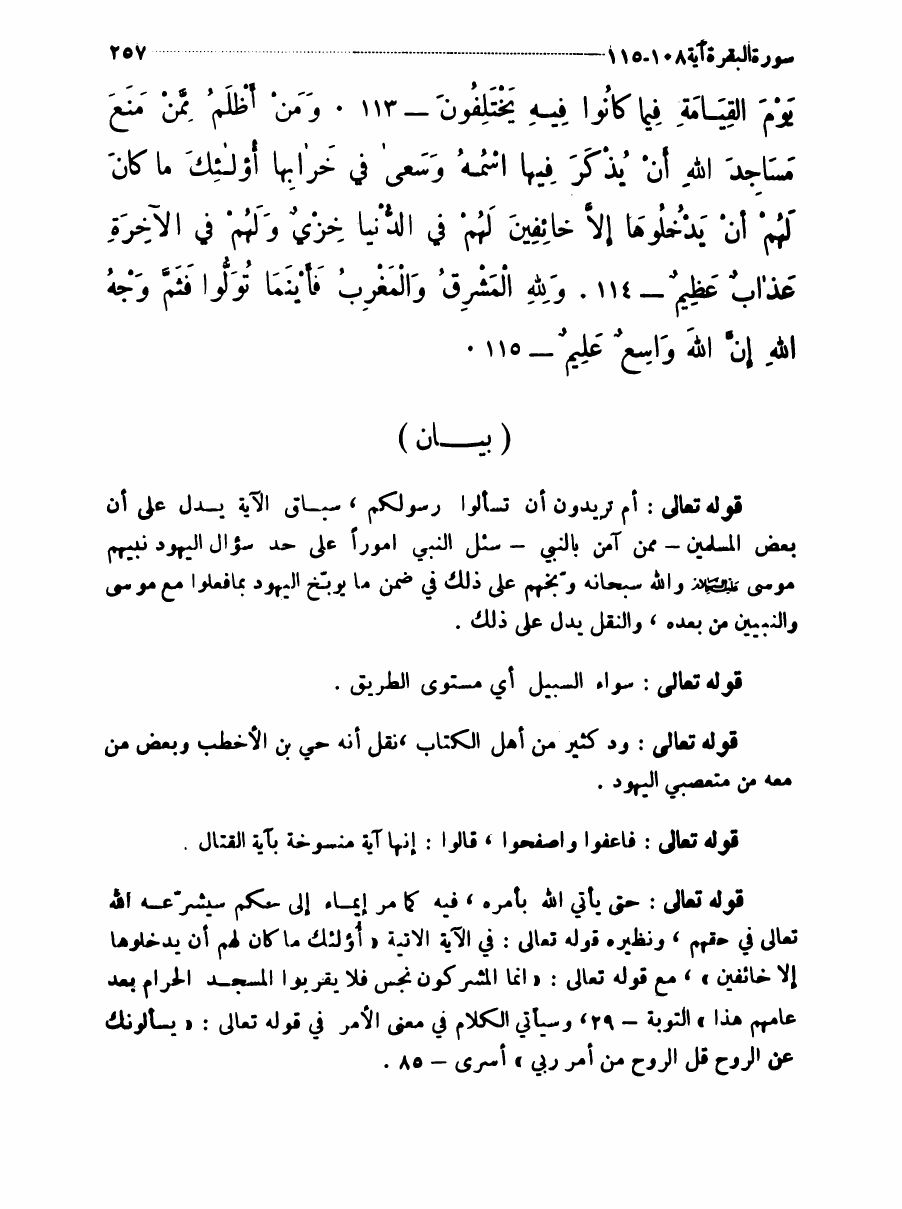 سورة البقرة آية ١٠٨-١١٥ ٢٥٧
يَوْمَ القِيَامَةِ فِيما كانُوا فِيهِ يَخْتَلِفُونَ – ١١٣ . وَمَنْ أَظْلَمُ مِمَّنْ مَنَعَ
مَسَاجِدَ اللهِ أَنْ يُذْكَرَ فِيها اسْمُهُ وَسَعىٰ في خَرابِها أُولٰئِكَ ما كانَ
لَهُمْ أَنْ يَدْخُلُوهَا إِلاَّ خائِفِينَ لَهُمْ في الدُّنيا خِزْيٌ وَلَهُمْ في الآخِرَةِ
عَذابٌ عَظِيمٌ – ١١٤ . وَلِلهِ الْمَشْرِقُ وَالْمَغْرِبُ فَأَيْنَمَا تُوَلُّوا فَثَمَّ وَجْهُ
اللهِ إِنَّ اللهَ وَاسِعٌ عَلِيمٌ – ١١٥ .
( بيـــان )
قوله تعالى : أم تريدون أن تسألوا رسولكم ، سياق الآية يدل على أن
بعض المسلمين – ممن آمن بالنبي – سئل النبي اموراً على حد سؤال اليهود نبيهم
موسى عليه السلام والله سبحانه وبّخهم على ذلك في ضمن ما يوبّخ اليهود بما فعلوا مع موسى
والنبيين من بعده ، والنقل يدل على ذلك .
قوله تعالى : سواء السبيل أي مستوى الطريق .
قوله تعالى : ود كثير من أهل الكتاب ، نقل أنه حي بن الأخطب وبعض من
معه من متعصبي اليهود .
قوله تعالى : فاعفوا واصفحوا ، قالوا : إنها آية منسوخة بآية القتال .
قوله تعالى : حتى يأتي الله بأمره ، فيه كما مر إيماء إلى حكم سيشرّعه الله
تعالى في حقهم ، ونظيره قوله تعالى : في الآية الاتية « أُولئك ما كان لهم أن يدخلوها
إلا خائفين » ، مع قوله تعالى : « انما المشركون نجس فلا يقربوا المسجد الحرام بعد
عامهم هذا » التوبة – ٢٩ ، وسيأتي الكلام في معنى الأمر في قوله تعالى : « يسألونك
عن الروح قل الروح من أمر ربي » أسرى – ٨٥ .